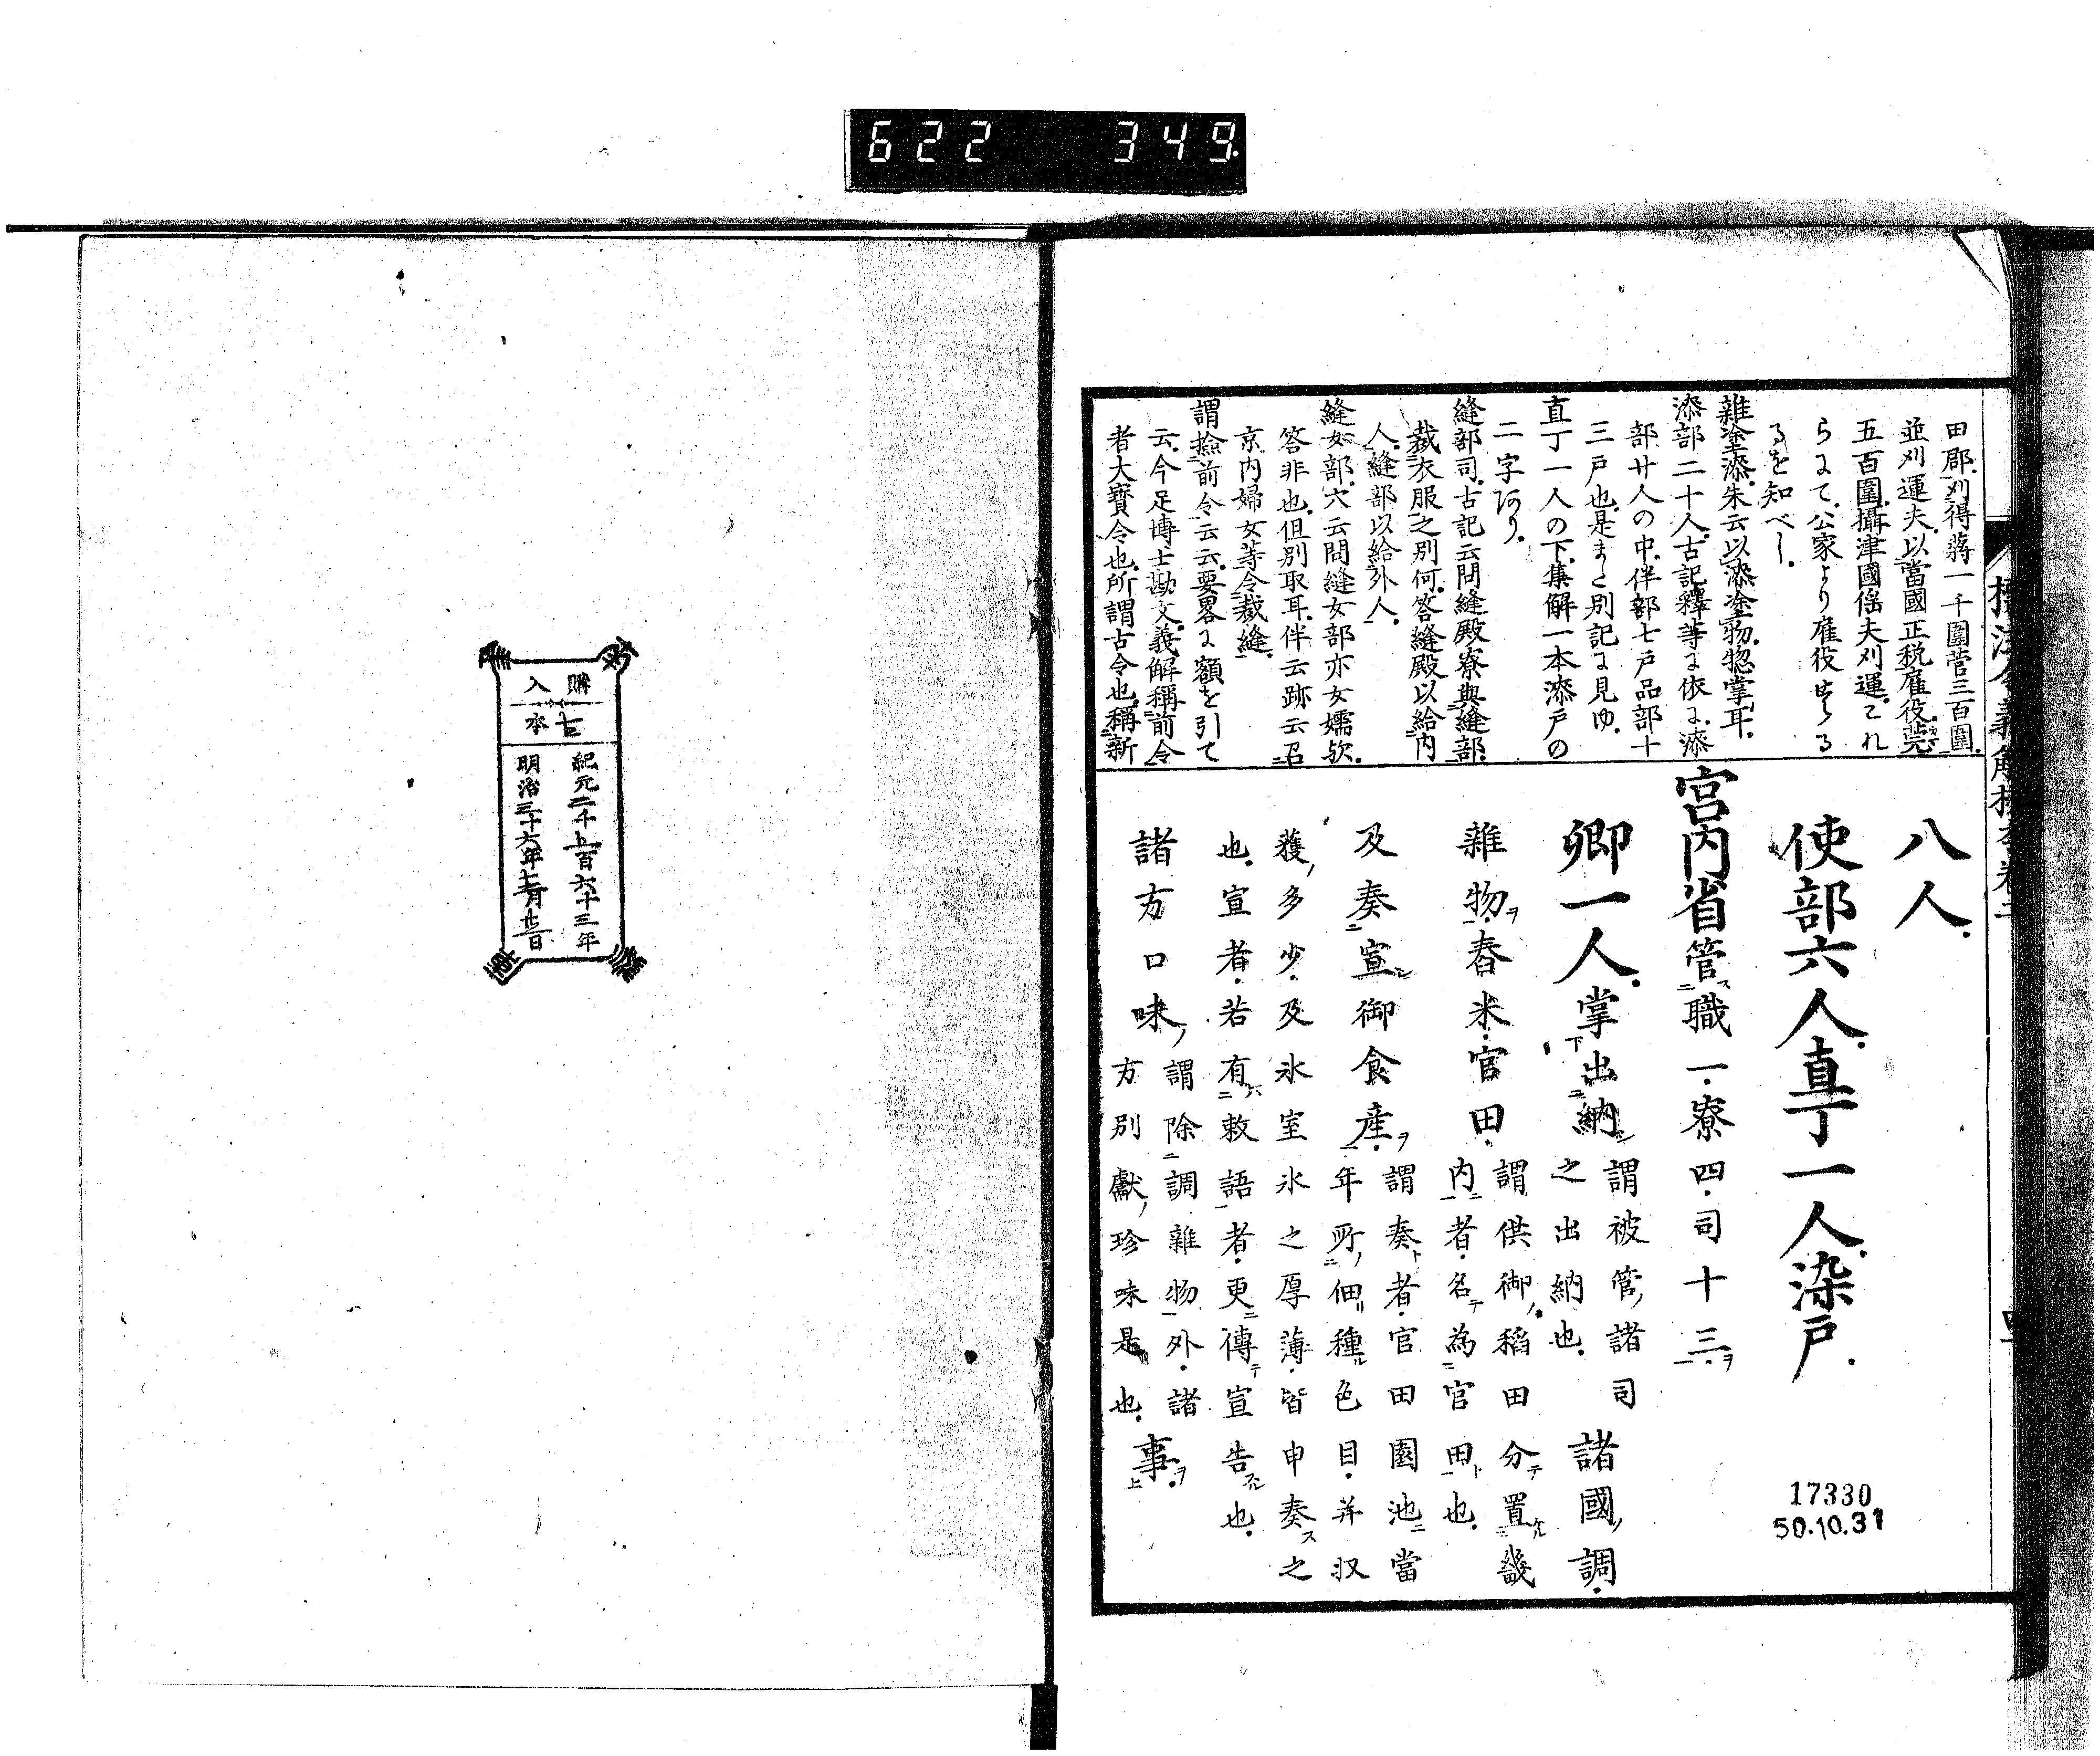 622 349.
田郡.刈得蒋一千圍菅三百圍.
並刈運夫.以當國正税雇役.莞
五百圍.攝津國徭夫刈運.これ
らにて.公家より雇役せらる
るを知べし.
雜塗漆.朱云以漆塗物.惣掌耳.
漆部二十人.古記釋等に依に.漆
部廿人の中.伴部七戸品部十
三戸也.是また別記に見ゆ.
直丁一人の下.集解一本漆戸の
二字あり.
縫部司.古記云問縫殿寮與縫部.
裁衣服之別何.答縫殿以給内
人.縫部以給外人.
縫女部.穴云問縫女部亦女孺歟.
答非也.但別取耳.伴云跡云召
京内婦女等令裁縫.
謂撿前令云云.要畧に額を引て
云.今足博士勘文.義解稱前令
者大寶令也.所謂古令也.稱新
八人.
使部六人.直丁一人.染戸.
宮内省管ス二職一.寮四.司十三.ヲ一
卿一人.掌下出二納シ謂被管ノ諸司
之出納也.諸國ノ調.
雜物.ヲ一舂米.官田.謂供御ノ稻田分テ置ク二畿
内一者.名テ為二官田ト一也.
及奏二宣シ御食産.ヲ一謂奏ト者.官田園池二當
年所ノ二佃リ種ル色目.并収
獲ノ多少.及氷室氷之厚薄.皆申奏ス之
也.宣者.若有ハ二敕語一者.更二傳テ宣告スル也.
諸方口味ノ謂除二調雜物一外.諸
方別獻ノ珍味是也.事.ヲ上
17330
50.10.31
購入
古本
紀元二千五百六十三年
明治三十六年七月廿三日